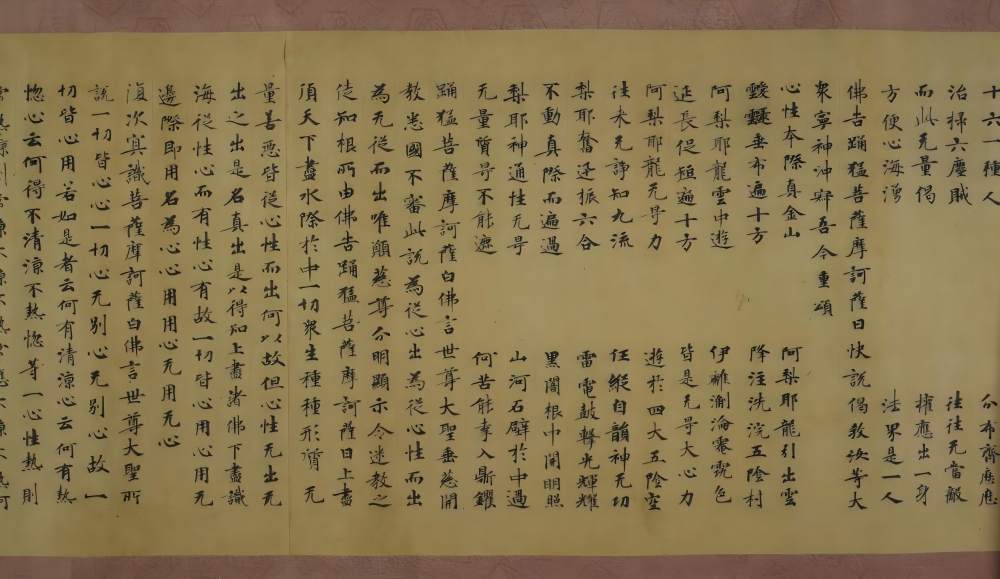 十六一種人 分布齊應應
治掃六塵賊 往往无當敵
而此无量偈 權應出一身
方便心海湧 法界是一人
佛告踊猛菩薩摩訶薩曰快說偈教汝等大
眾寧神沖寂吾今重頌
心性本際真金山 阿梨耶龍引出雲
靉靆垂布遍十方 降注洗浣五陰村
阿梨耶龍雲中遊 伊離淪霑霓色
延長促短遍十方 皆是无㝵大心力
阿梨耶龍无㝵力 遊於四大五陰室
往来无諍知九流 任縱自韻神无功
梨耶奮迅振六合 雷電鼓聲光輝耀
不動真際而遍過 黑闇根中開明照
梨耶神通性无㝵 山河石壁於中過
无量質㝵不能遮 何苦能入鼎鑊
踊猛菩薩摩訶薩白佛言世尊大聖垂慈開
教悉國不審此說為從心出為從心性而出
為无從而出唯願慈尊分明顯示令迷教之
徒知根所由佛告踊猛菩薩摩訶薩曰上盡
頂天下盡水際於中一切眾生種種形質无
量善惡皆從心性而出何以故但心性无出无
出之出是名真出是以得知上盡諸佛下盡識
海從性心而有性心有故一切皆心用心用无
邊際即用名為心心用用心无用无心
復次寘識菩薩摩訶薩白佛言世尊大聖所
說一切皆心心一切心无別心心无別心故一
切皆心用若如是者云何有清涼心云何有熱
惱心云何得不清涼不熱惱等一心性熱則